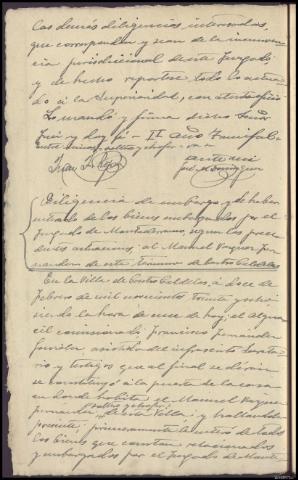 las demás diligencias interesadas,
que correspondan y sean de la incumven-
cia jurisdiccional de este Juzgado
y de hecho reportese todo lo actua-
do a la Superioridad, con atento oficio
Lo mandó y firma dicho Señor
Juez y doy fé - II año Triunfal
ante mi
Diligencia de embargo y de haber
entrado de los bienes embargados por el
Juzgado de Manzaneda segun las prece-
dentes actuaciones, al Manuel Vazquez Fer-
nandez de este termino de Castro Caldelas
En la Villa de Castro Caldelas, á doce de
Febrero de mil novecientos Treinta y
siendo la hora de once de hoy, el algua-
cil comisionado Francisco Fernández
asistido del infrascrito Secreta-
rio y testigos que al final se dirán
se constituyó á la puerta de la casa
en donde habita el Manuel Vazquez
Fernandez, de esta Villa; y hallandole
presente; primeramente le entero de todos
los bienes que constan relacionados
y embargados por el Juzgado de